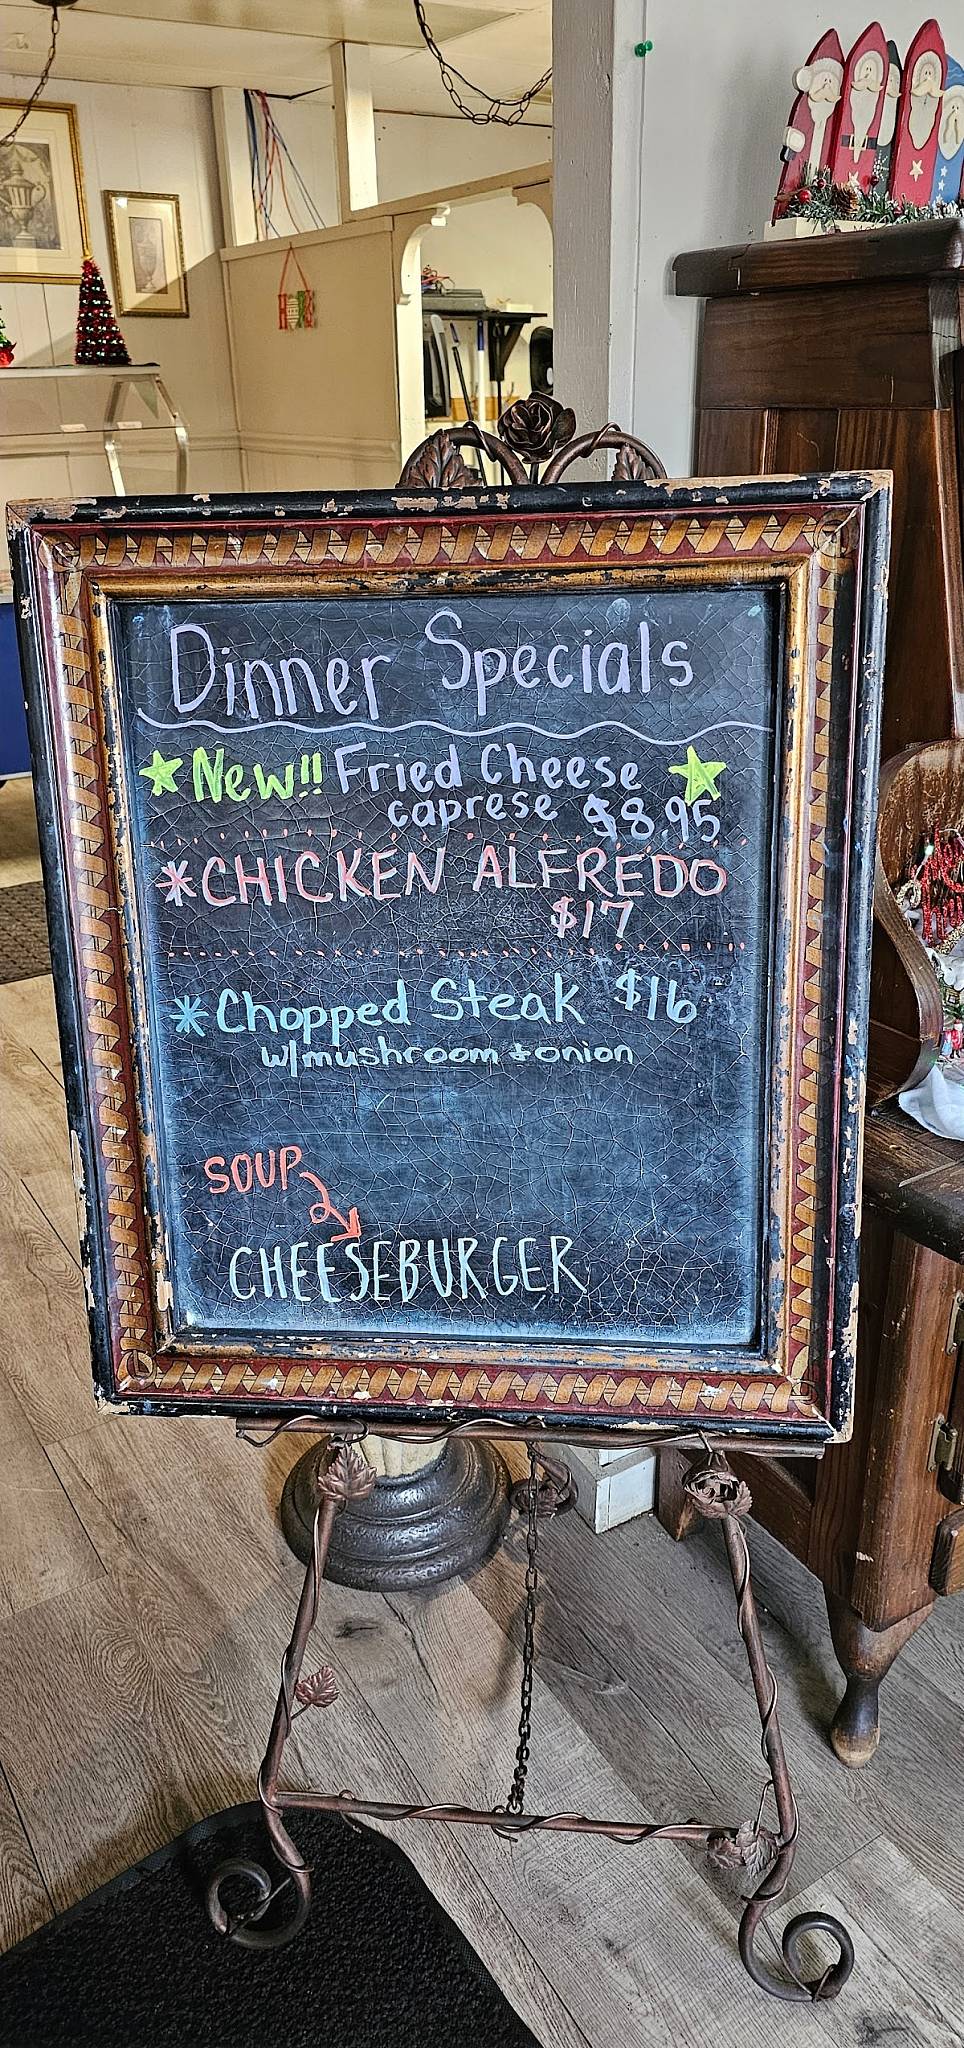 Dinner Specials
New!! Fried Cheese
caprese $8.95
*CHICKEN ALFREDO
$17
*Chopped Steak $16
w/mushroom + onion
SOUP
CHEESEBURGER